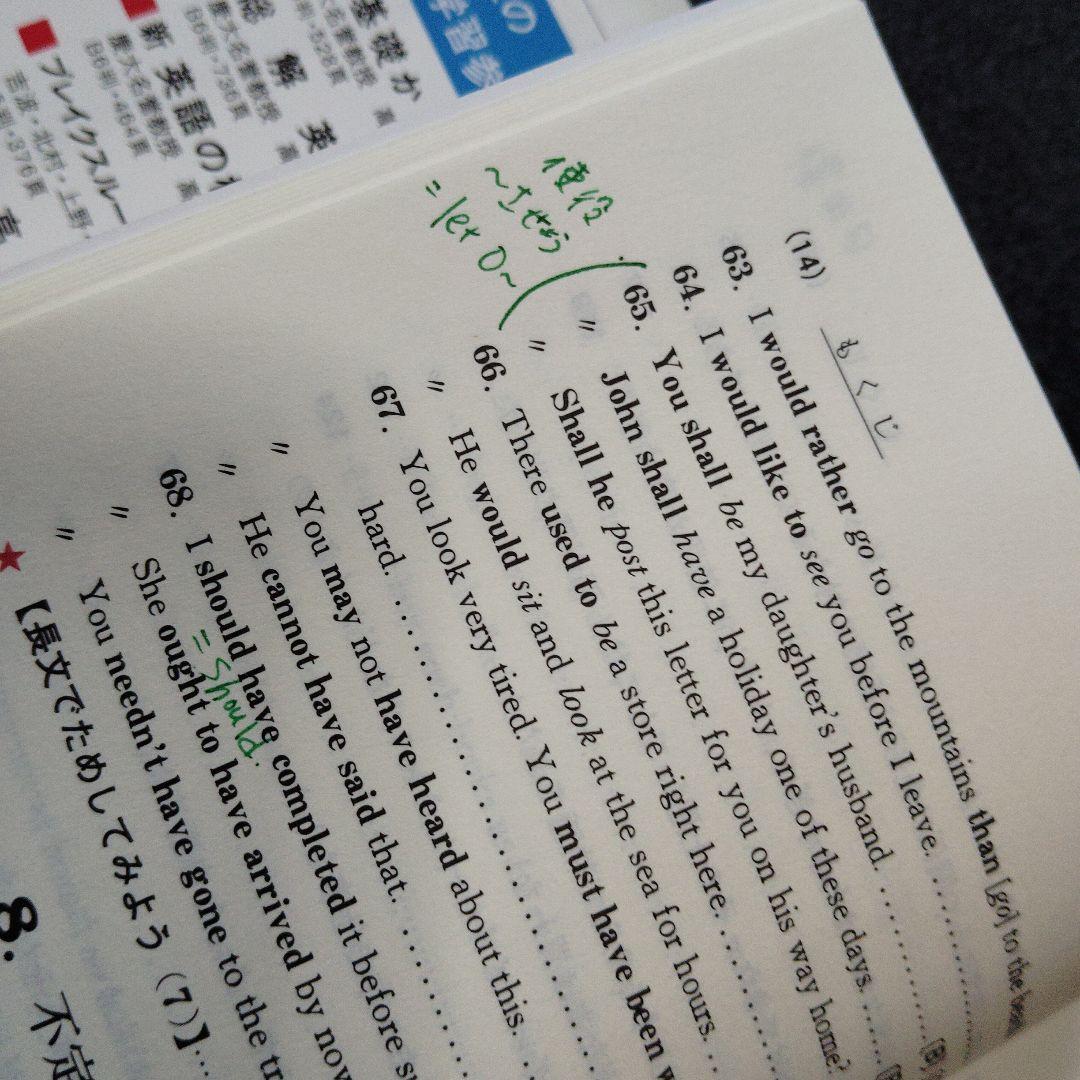 (14) もくじ
63. I would rather go to the mountains than [go] to the
64. I would like to see you before I leave. ............
65. You shall be my daughter's husband. ............
〃 John shall have a holiday one of these days. ......
〃 Shall he post this letter for you on his way home?
66. There used to be a store right here. ............
〃 He would sit and look at the sea for hours. ...
67. You look very tired. You must have been
hard. ............
〃 You may not have heard about this. ......
〃 He cannot have said that. ............
68. I should have completed it before
〃 She ought to have arrived by now
〃 You needn't have gone to the
★【長文でためしてみよう (7)】...
8. 不定
使役
〜させる
= let O〜
= should
の
学習参
基礎か
総解英
新英語の
産大名誉教授
B6判・464頁
ブレイクスルー
吉波・北村・上野・
・376頁
高